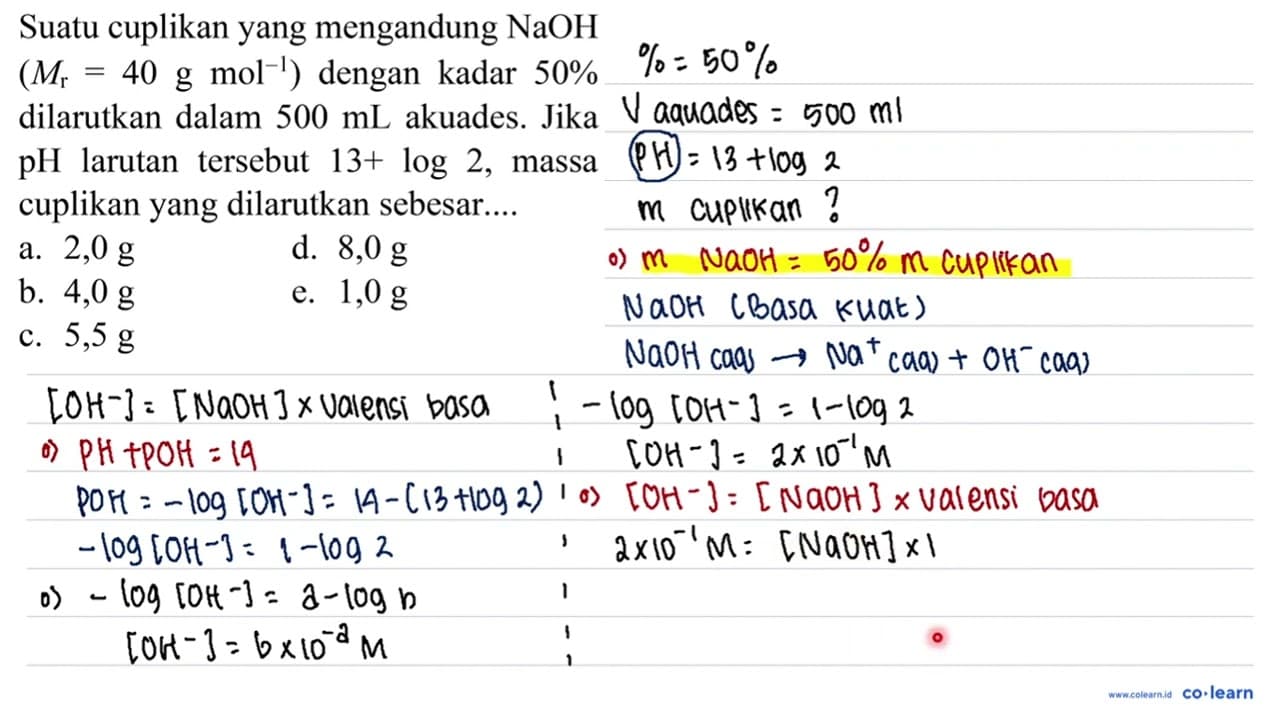 Suatu cuplikan yang mengandung NaOH
(Mr = 40 g mol⁻¹) dengan kadar 50%
dilarutkan dalam 500 mL akuades. Jika
pH larutan tersebut 13+ log 2, massa
cuplikan yang dilarutkan sebesar....
a. 2,0 g d. 8,0 g
b. 4,0 g e. 1,0 g
c. 5,5 g
% = 50%
V aquades = 500 ml
PH = 13 + log 2
m cuplikan ?
o) m NaOH = 50% m cuplikan
NaOH (Basa kuat)
NaOH (aq) → Na⁺ (aq) + OH⁻ (aq)
[OH⁻] = [NaOH] x valensi basa
o) PH + POH = 14
POH = -log [OH⁻] = 14 - (13 + log 2)
-log [OH⁻] = 1 - log 2
o) - log [OH⁻] = a - log b
[OH⁻] = b x 10⁻ᵃ M
- log [OH⁻] = 1 - log 2
[OH⁻] = 2 x 10⁻¹ M
o) [OH⁻] = [NaOH] x valensi basa
2 x 10⁻¹ M = [NaOH] x 1
www.colearn.id co·learn